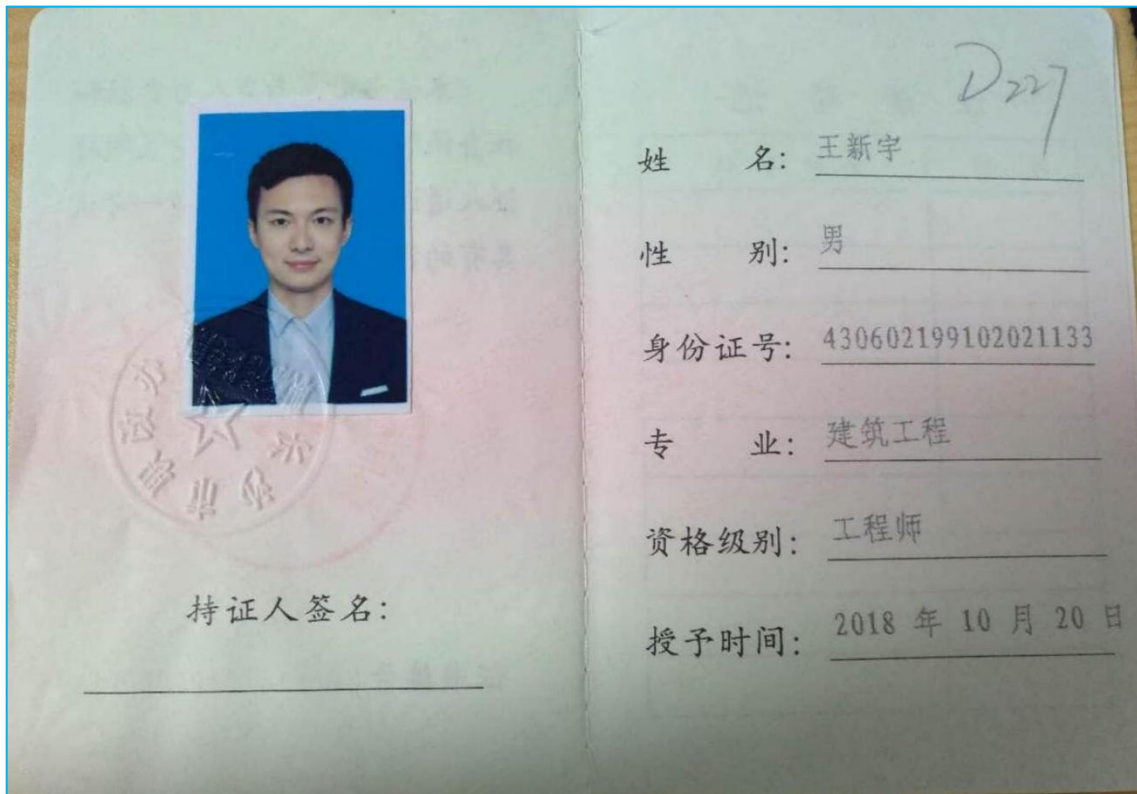 D227
姓 名: 王新宇
性 别: 男
身份证号: 430602199102021133
专 业: 建筑工程
资格级别: 工程师
授予时间: 2018 年 10 月 20 日
持证人签名: